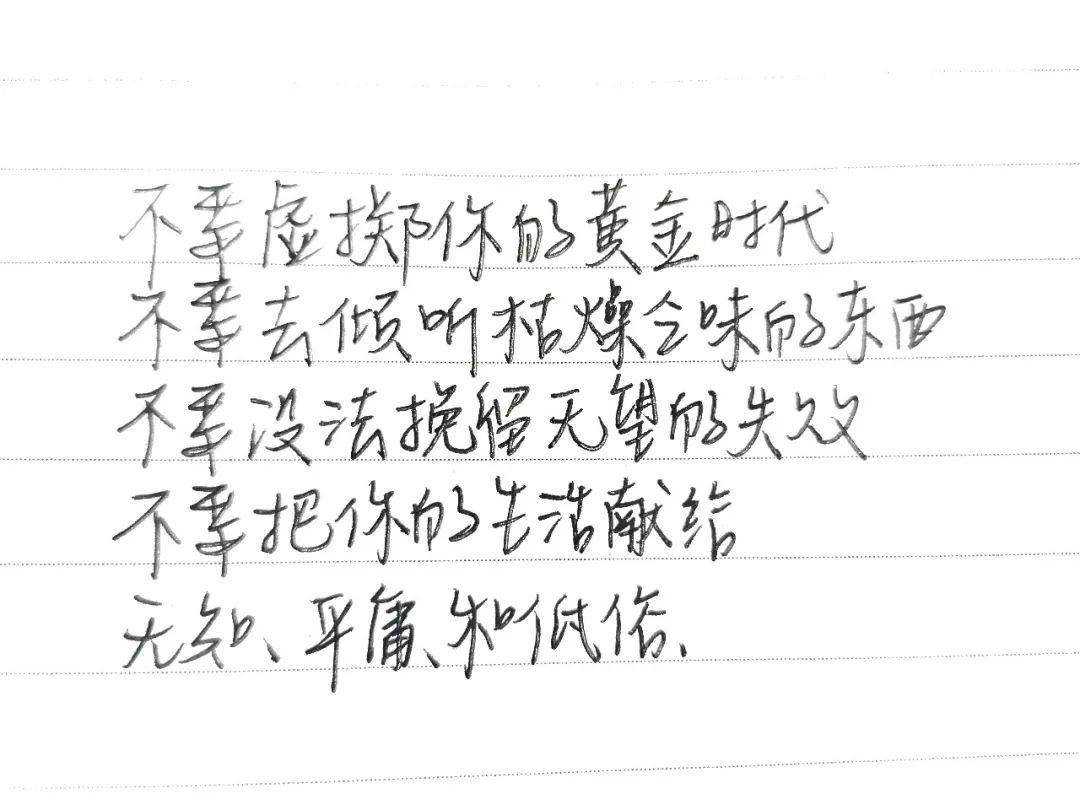 不要虚掷你的黄金时代
不要去倾听枯燥乏味的东西
不要设法挽留无望的失败
不要把你的生活献给
无知、平庸、和低俗、